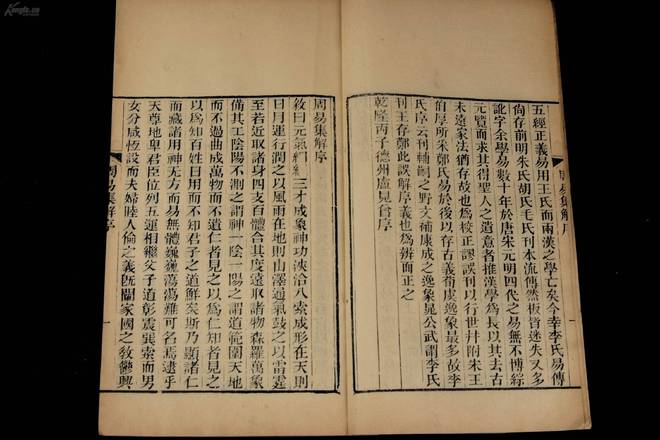 五經正義易用王氏而兩漢之學亡矣今幸李氏易傳
尙存前明朱氏胡氏毛氏刊本流傳然板皆迷失又多
訛字余學易數十年於唐宋元明四代之易無不博綜
元覽而求其得聖人之遺意者推漢學爲長以其去古
未遠家法猶存故也爲校正謬誤刊以行世并附宋王
伯厚所采鄭氏易於後以存古義荀虞逸象最多故李
氏序云刊輔嗣之野文補康成之逸象晁公武謂李氏
刊王存鄭此誤解序義也爲辨而正之
乾隆丙子德州盧見曾序
周易集解序
周易集解序
敘曰元氣絪緼三才成象神功浹洽八索成形在天則
日月運行潤之以風雨在地則山澤通氣鼓之以雷霆
至若近取諸身四支百體合其度遠取諸物森羅萬象
備其工陰陽不測之謂神一陰一陽之謂道範圍天地
而不過曲成萬物而不遺仁者見之以爲仁知者見之
以爲知百姓日用而不知君子之道鮮矣斯乃顯諸仁
而藏諸用神无方而易無體巍巍蕩蕩難可名焉逮乎
天尊地卑君臣位列五運相繼父子道彰震巽索而男
女分咸恆設而夫婦睦人倫之義旣闡家國之敎鬱興
周易集解序
一
Kongfz.cn